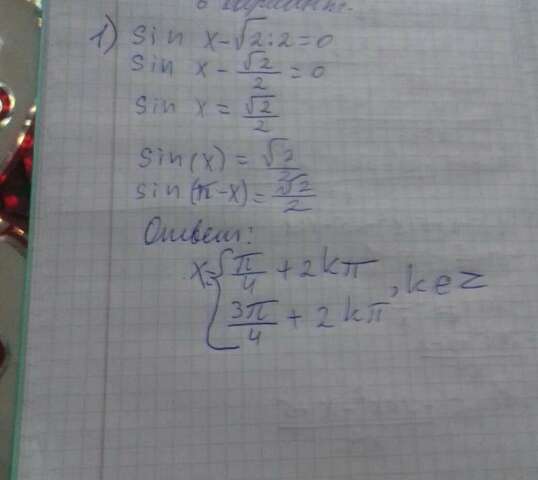 6 вариант.
1) Sin x-√2:2=0
Sin x - √2/2 = 0
Sin x = √2/2
Sin(x) = √2/2
sin(π-x) = √2/2
Ответ:
x= { π/4 + 2kπ
3π/4 + 2kπ , k∈Z